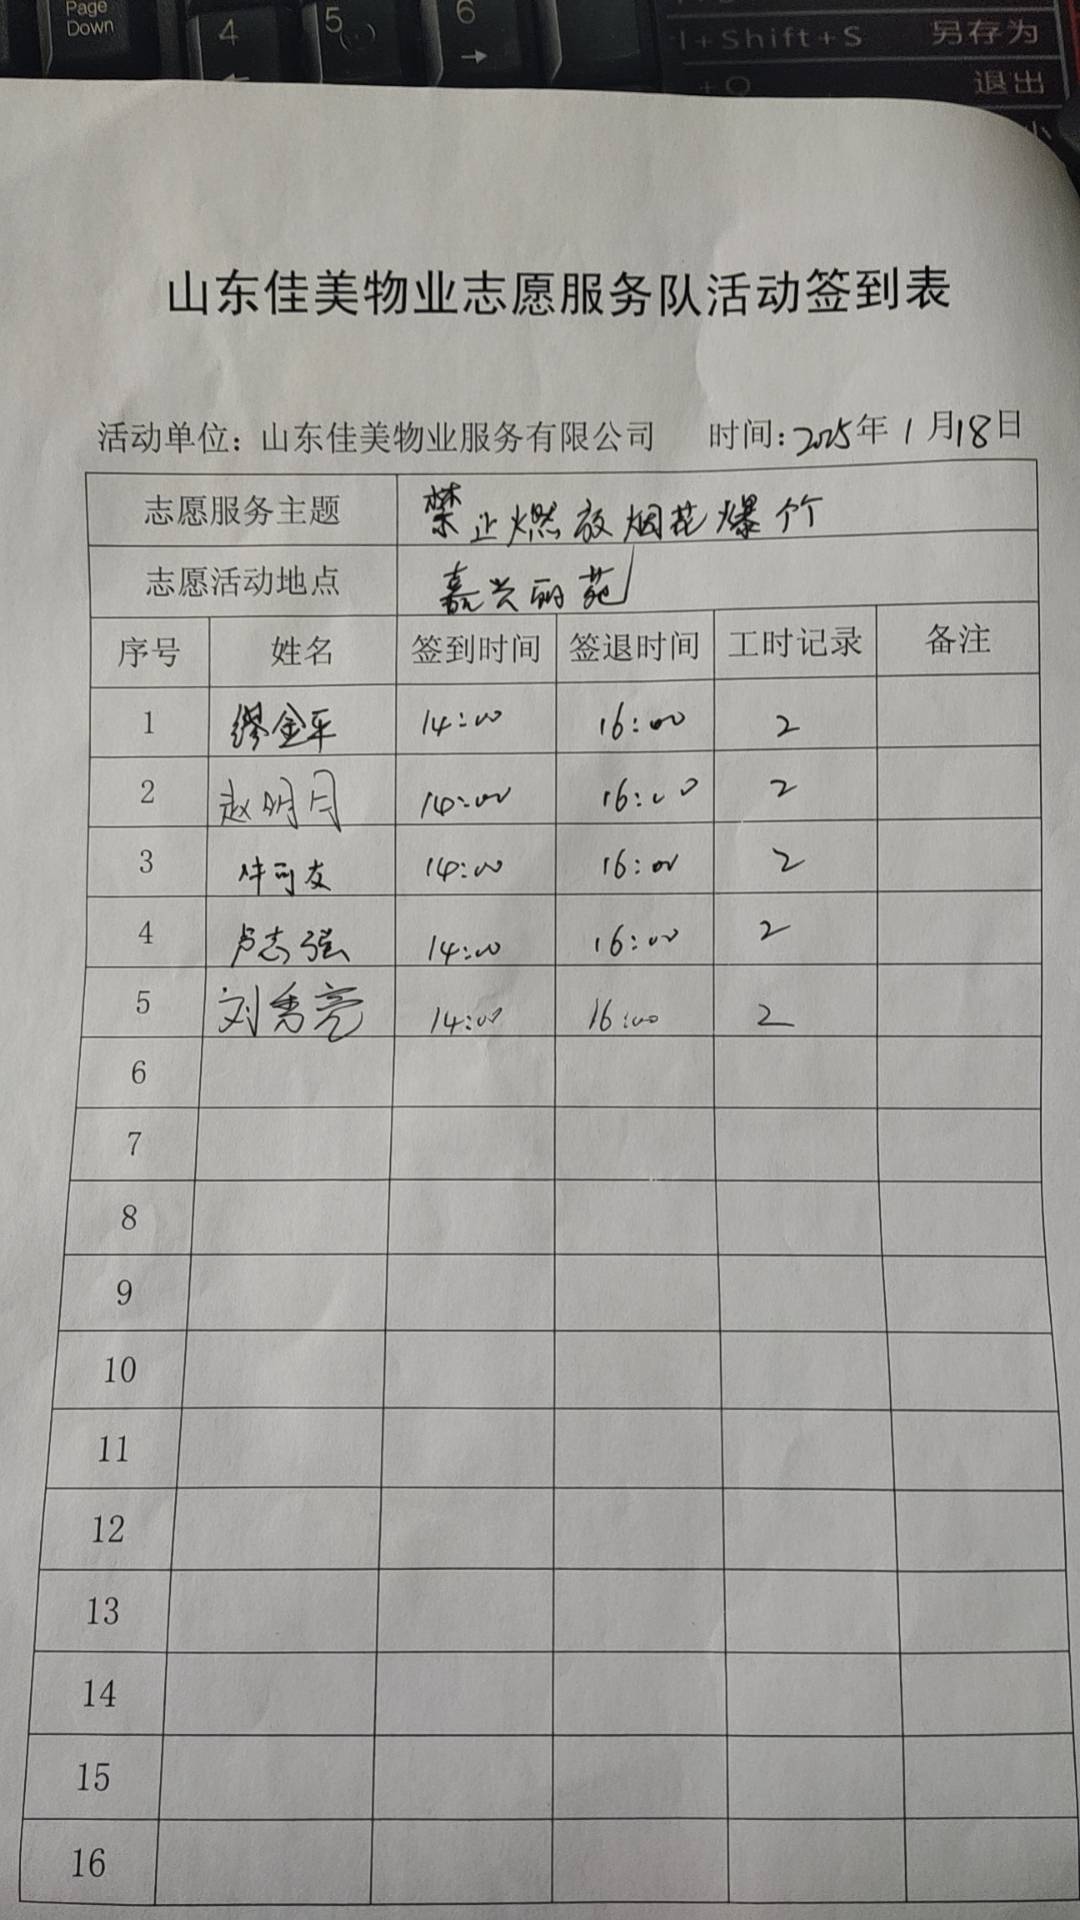 Page
Down
4
5
6
→
←
+Shift+S 另存为
+O 退出
小
山东佳美物业志愿服务队活动签到表
活动单位：山东佳美物业服务有限公司 时间：2025年1月18日
志愿服务主题 禁止燃放烟花爆竹
志愿活动地点 嘉兴丽苑
序号 姓名 签到时间 签退时间 工时记录 备注
1 缪金平 14:00 16:00 2
2 赵明月 14:00 16:00 2
3 可友 14:00 16:00 2
4 卢志强 14:00 16:00 2
5 刘秀亮 14:00 16:00 2
6
7
8
9
10
11
12
13
14
15
16